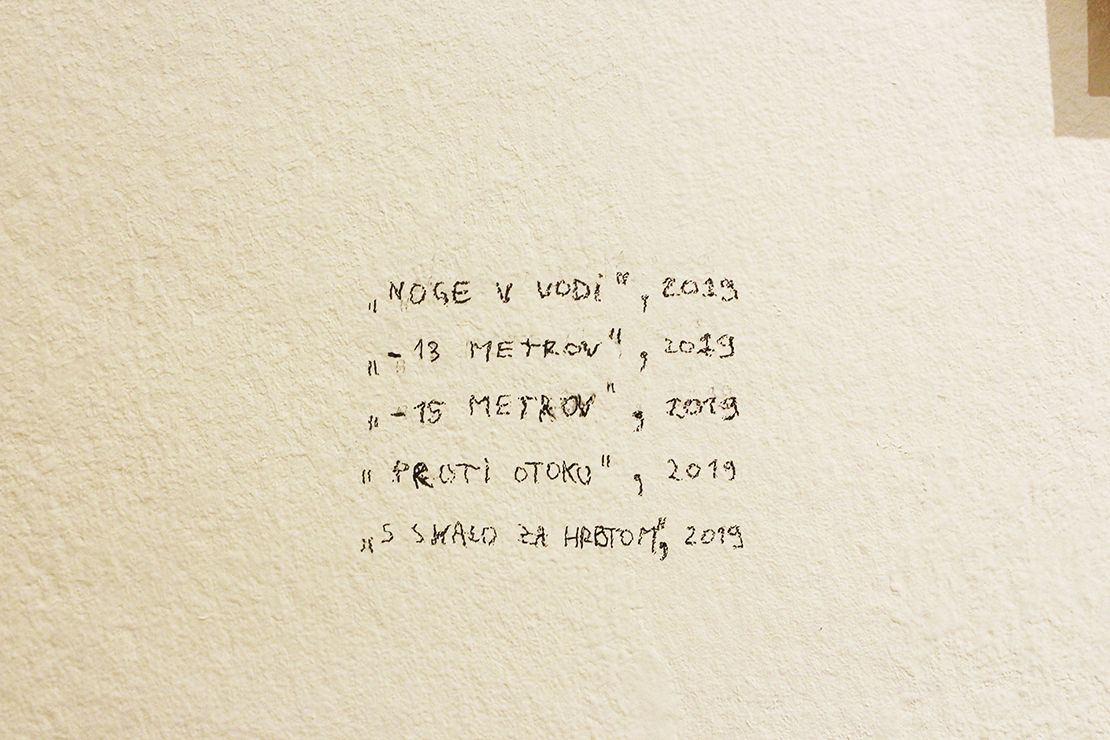 „NOGE V VODI", 2019
„-13 METROV", 2019
„-15 METROV", 2019
"PROTI OTOKU", 2019
„S SKALO ZA HRBTOM", 2019